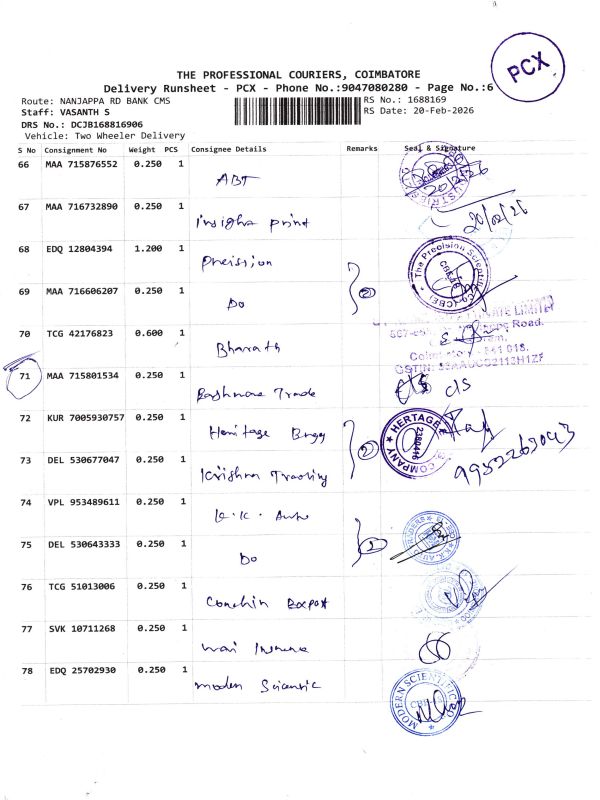 PCX
THE PROFESSIONAL COURIERS, COIMBATORE
Delivery Runsheet - PCX - Phone No.:9047080280 - Page No.:6
Route: NANJAPPA RD BANK CMS
RS No.: 1688169
Staff: VASANTH S
RS Date: 20-Feb-2026
DRS No.: DCJB168816906
Vehicle: Two Wheeler Delivery
S No Consignment No Weight PCS Consignee Details Remarks Seal & Signature
66 MAA 715876552 0.250 1
ABT
20/2/26
67 MAA 716732890 0.250 1
Insight print
20/02/26
68 EDQ 12804394 1.200 1
The Precision Scientific Co. (CBE)
69 MAA 716606207 0.250 1
Do
2
70 TCG 42176823 0.600 1
Bharath
71 MAA 715801534 0.250 1
Trade
72 KUR 7005930757 0.250 1
Heritage
HERTAGE COMPANY
2380416
2
73 DEL 530677047 0.250 1
Krishna Trading
74 VPL 953489611 0.250 1
K.K. Auto
75 DEL 530643333 0.250 1
Do
2
76 TCG 51013006 0.250 1
Export
77 SVK 10711268 0.250 1
78 EDQ 25702930 0.250 1
Modern Scientific
MODERN SCIENTIFIC